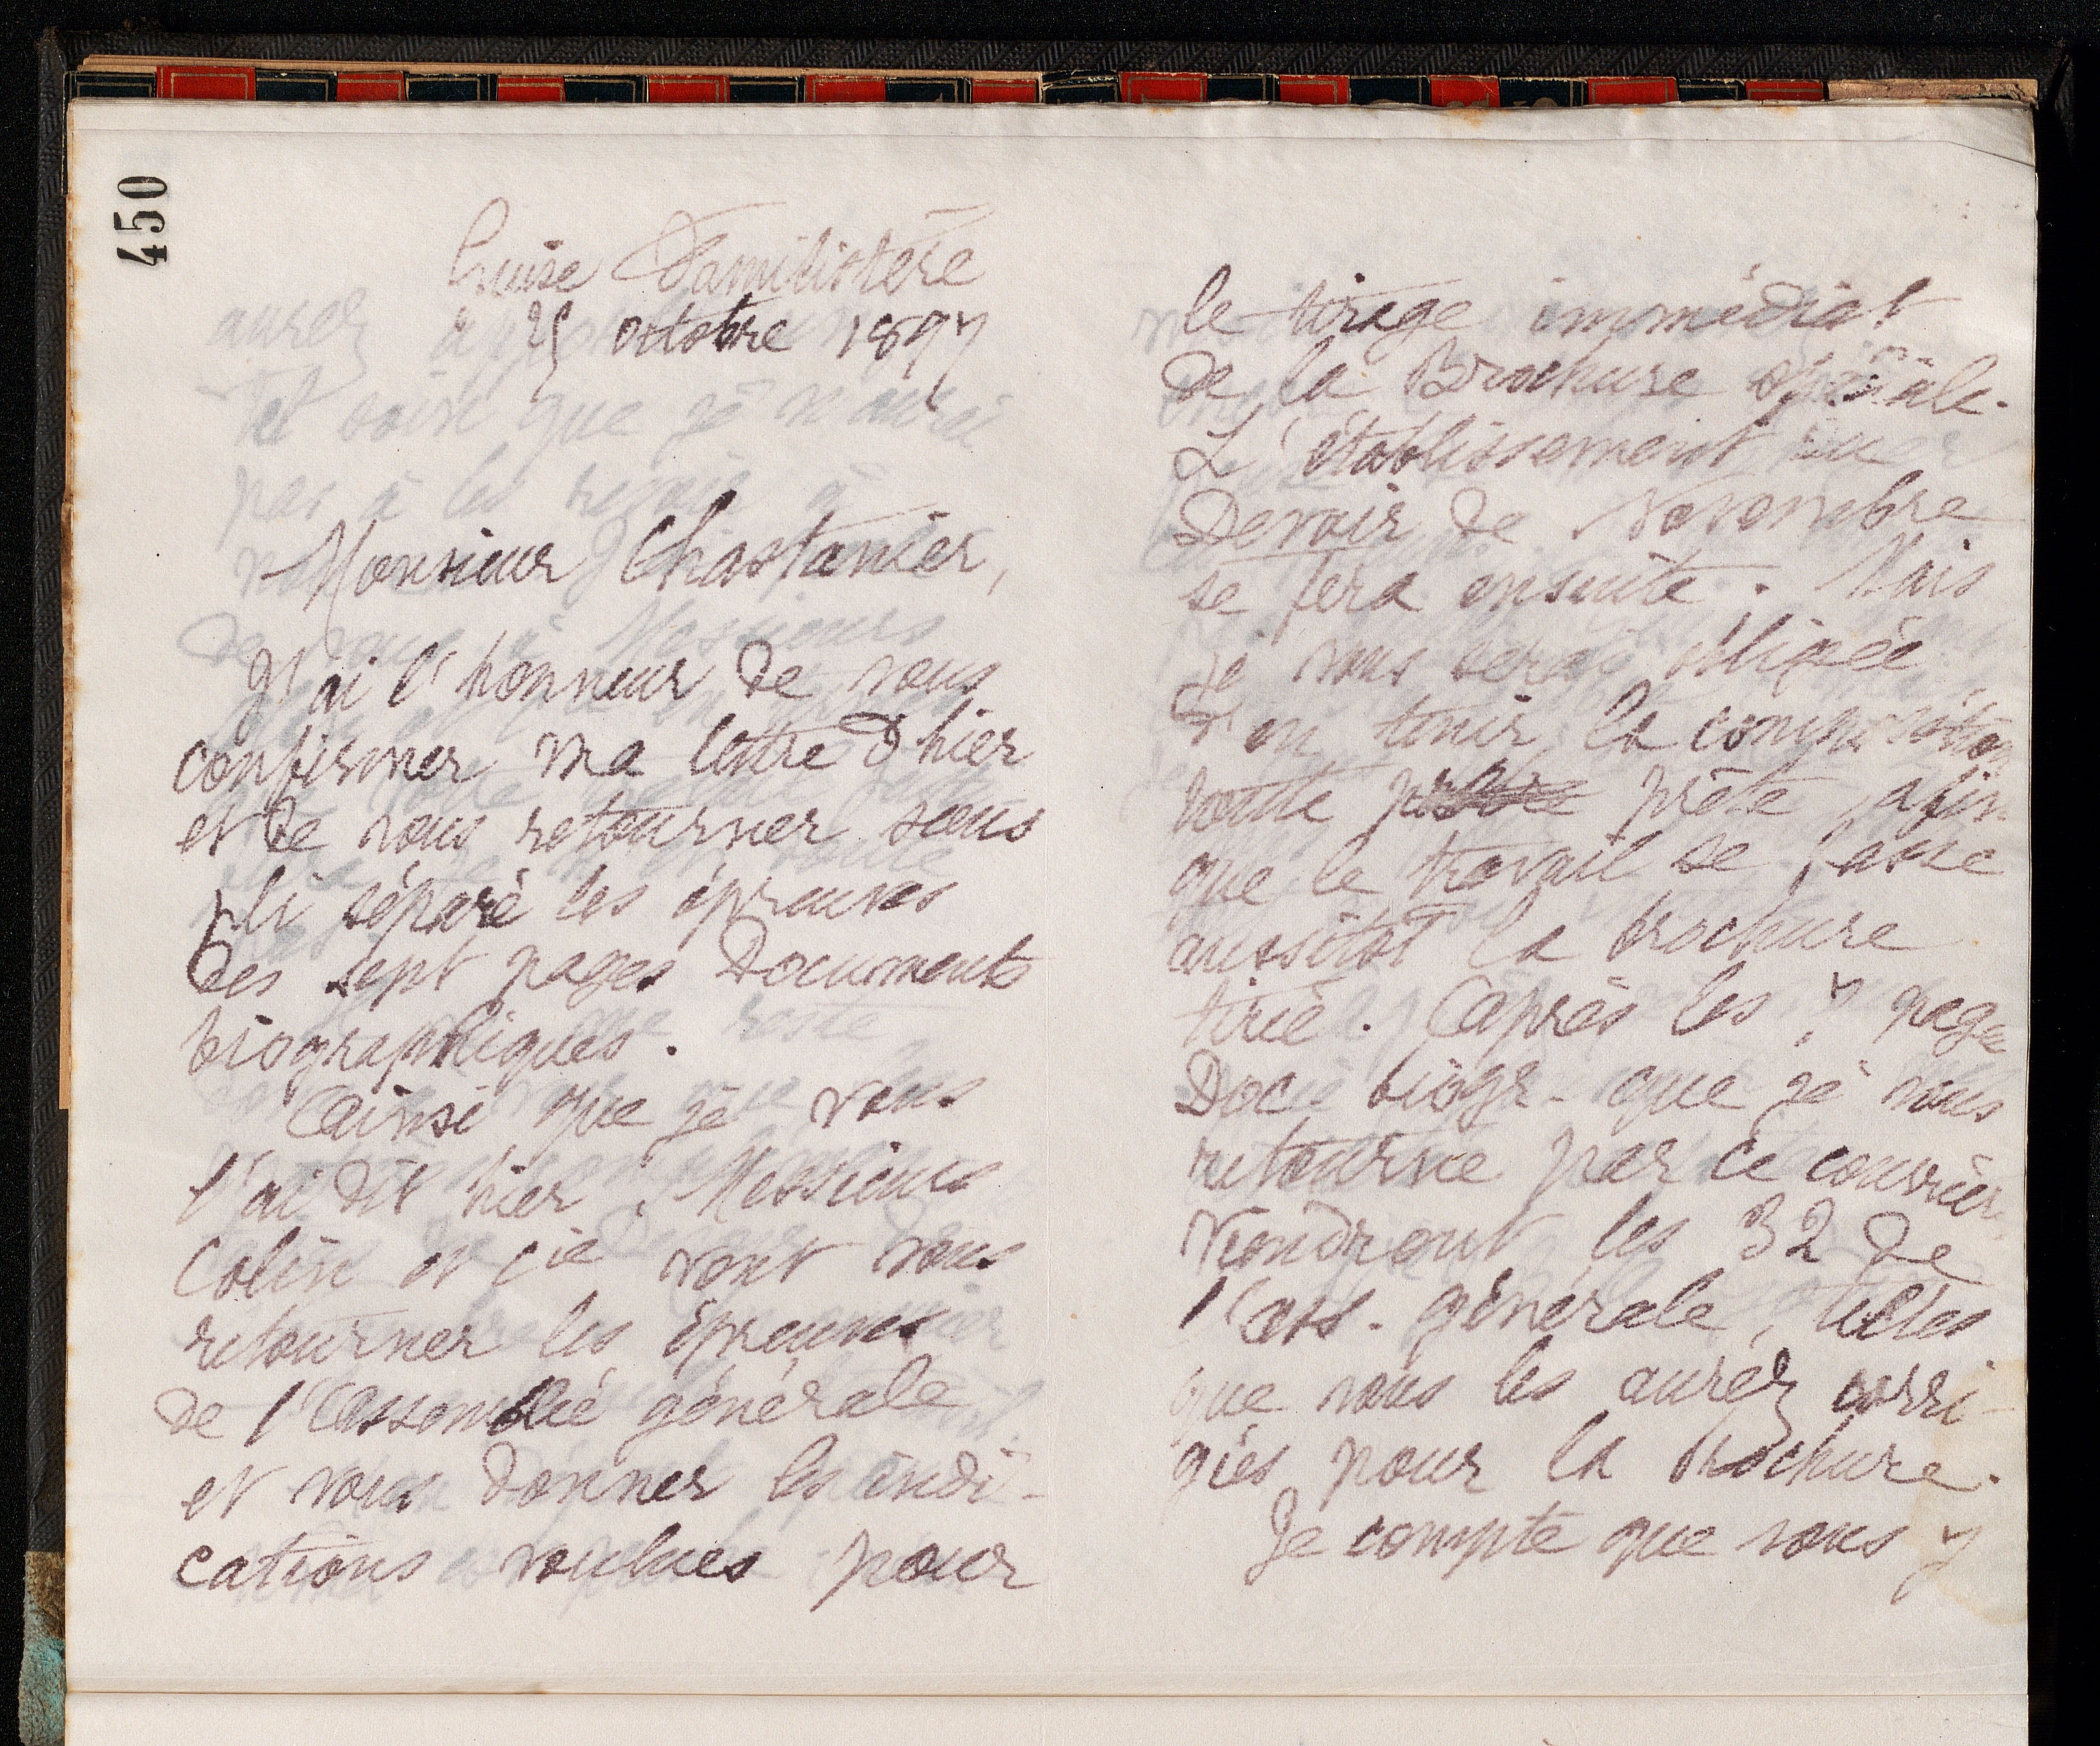 450
Guise Familistère
25 octobre 1897
Monsieur Chastanier,
J'ai l'honneur de vous
confirmer ma lettre d'hier
et de vous retourner sous
pli séparé les épreuves
des sept pages Documents
biographiques.
Ainsi que je vous
l'ai dit hier, Messieurs
Colin et Cie vont vous
retourner les épreuves
de l'Assemblée générale
et vous donner les indi-
cations voulues pour
le tirage immédiat
de la Brochure spéciale.
L'établissement du
Devoir de Novembre
se fera ensuite. Mais
je vous serai obligée
d'en tenir la composition
toute prête, afin
que le travail se fasse
aussitôt la brochure
tirée. Après les 7 pages
Doc biogr- que je vous
retourne par ce courrier
viendront les 32 de
l'ass. générale, telles
que vous les aurez corri-
gées pour la brochure.
Je compte que vous y